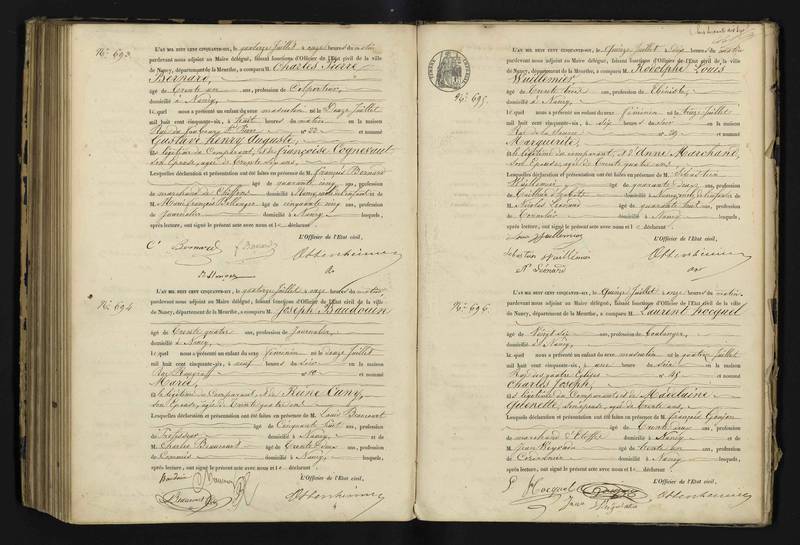 N.º 693.
L'AN MIL HUIT CENT CINQUANTE-SIX, le quatorze Juillet à onze heures du matin
pardevant nous adjoint au Maire délégué, faisant fonctions d'Officier de l'Etat civil de la ville
de Nancy, département de la Meurthe, a comparu M. Charles Pierre
Bernard,
âgé de trente un ans, profession de Colporteur,
domicilié à Nancy,
lequel nous a présenté un enfant du sexe masculin né le Douze Juillet
mil huit cent cinquante-six, à huit heures du matin en la maison
Rue du n.º 22 et nommé
Gustave Henry Auguste,
fils légitime du Comparant, et de françoise Cognevaut
son Epouse, agée de trente six ans,
Lesquelles déclaration et présentation ont été faites en présence de M. françois Bernard
âgé de quarante cinq ans, profession
de marchand de Chiffons domicilié à Nancy, de
M. françois Bellenger âgé de cinquante cinq ans, profession
de Journalier domicilié à Nancy lesquels,
après lecture, ont signé le présent acte avec nous et le déclarant
L'Officier de l'Etat civil,
C. Bernard f Bernard Ottenheimer
N.º 694
L'AN MIL HUIT CENT CINQUANTE-SIX, le quatorze Juillet à onze heures du matin
pardevant nous adjoint au Maire délégué, faisant fonctions d'Officier de l'Etat civil de la ville
de Nancy, département de la Meurthe, a comparu M. Joseph Baudouin
âgé de trente quatre ans, profession de Journalier,
domicilié à Nancy,
lequel nous a présenté un enfant du sexe féminin né le douze Juillet
mil huit cent cinquante-six, à neuf heures du soir en la maison
Rue n.º 10 et nommé
Marie,
fille légitime du Comparant, et de Reine Cuny,
son Epouse, agée de trente quatre ans
Lesquelles déclaration et présentation ont été faites en présence de M. Louis Beaucourt
âgé de Cinquante huit ans, profession
de Professeur domicilié à Nancy et de
M. Charles Beaucourt âgé de trente Deux ans, profession
de Commis domicilié à Nancy, lesquels,
après lecture, ont signé le présent acte avec nous et le déclarant
L'Officier de l'Etat civil,
Baudouin
Beaucourt Ottenheimer
N.º 695.
L'AN MIL HUIT CENT CINQUANTE-SIX, le Quinze Juillet à Dix heures du matin
pardevant nous adjoint au Maire délégué, faisant fonctions d'Officier de l'Etat civil de la ville
de Nancy, département de la Meurthe, a comparu M. Rodolphe Louis
Wuillemier
âgé de trente trois ans, profession de Ebéniste,
domicilié à Nancy,
lequel nous a présenté un enfant du sexe féminin né le treize Juillet
mil huit cent cinquante-six, à six heures du soir en la maison
Rue de n.º 29 et nommé
Marguerite,
fille légitime du comparant, et d'Anne Marchand,
son Epouse, agée de trente quatre ans
Lesquelles déclaration et présentation ont été faites en présence de M. Sébastien
Wuillemier âgé de quarante Deux ans, profession
de domicilié à Nancy, de
M. Nicolas Léonard âgé de quarante huit ans, profession
de Tonnelier domicilié à Nancy lesquels,
après lecture, ont signé le présent acte avec nous et le déclarant
Louis Wuillemier L'Officier de l'Etat civil,
Sébastien Wuillemier Ottenheimer
N. Léonard
N.º 696.
L'AN MIL HUIT CENT CINQUANTE-SIX, le Quinze Juillet à onze heures du matin
pardevant nous adjoint au Maire délégué, faisant fonctions d'Officier de l'Etat civil de la ville
de Nancy, département de la Meurthe, a comparu M. Laurent hocquel
âgé de Vingt six ans, profession de Boulanger,
domicilié à Nancy,
lequel nous a présenté un enfant du sexe masculin né le quatorze Juillet
mil huit cent cinquante-six, à une heure du soir en la maison
Rue des quatre Eglises n.º 45 et nommé
Charles Joseph,
fils légitime du Comparant et de Madelaine
Quenette, son épouse, agée de trente ans,
Lesquelles déclaration et présentation ont été faites en présence de M. françois Goujon
âgé de trente ans, profession
de marchand d'Etoffes domicilié à Nancy et de
M. Jean âgé de trente un ans, profession
de Cordonnier domicilié à Nancy lesquels,
après lecture, ont signé le présent acte avec nous et le déclarant
L'Officier de l'Etat civil,
L Hocquel Goujon Ottenheimer
Jean